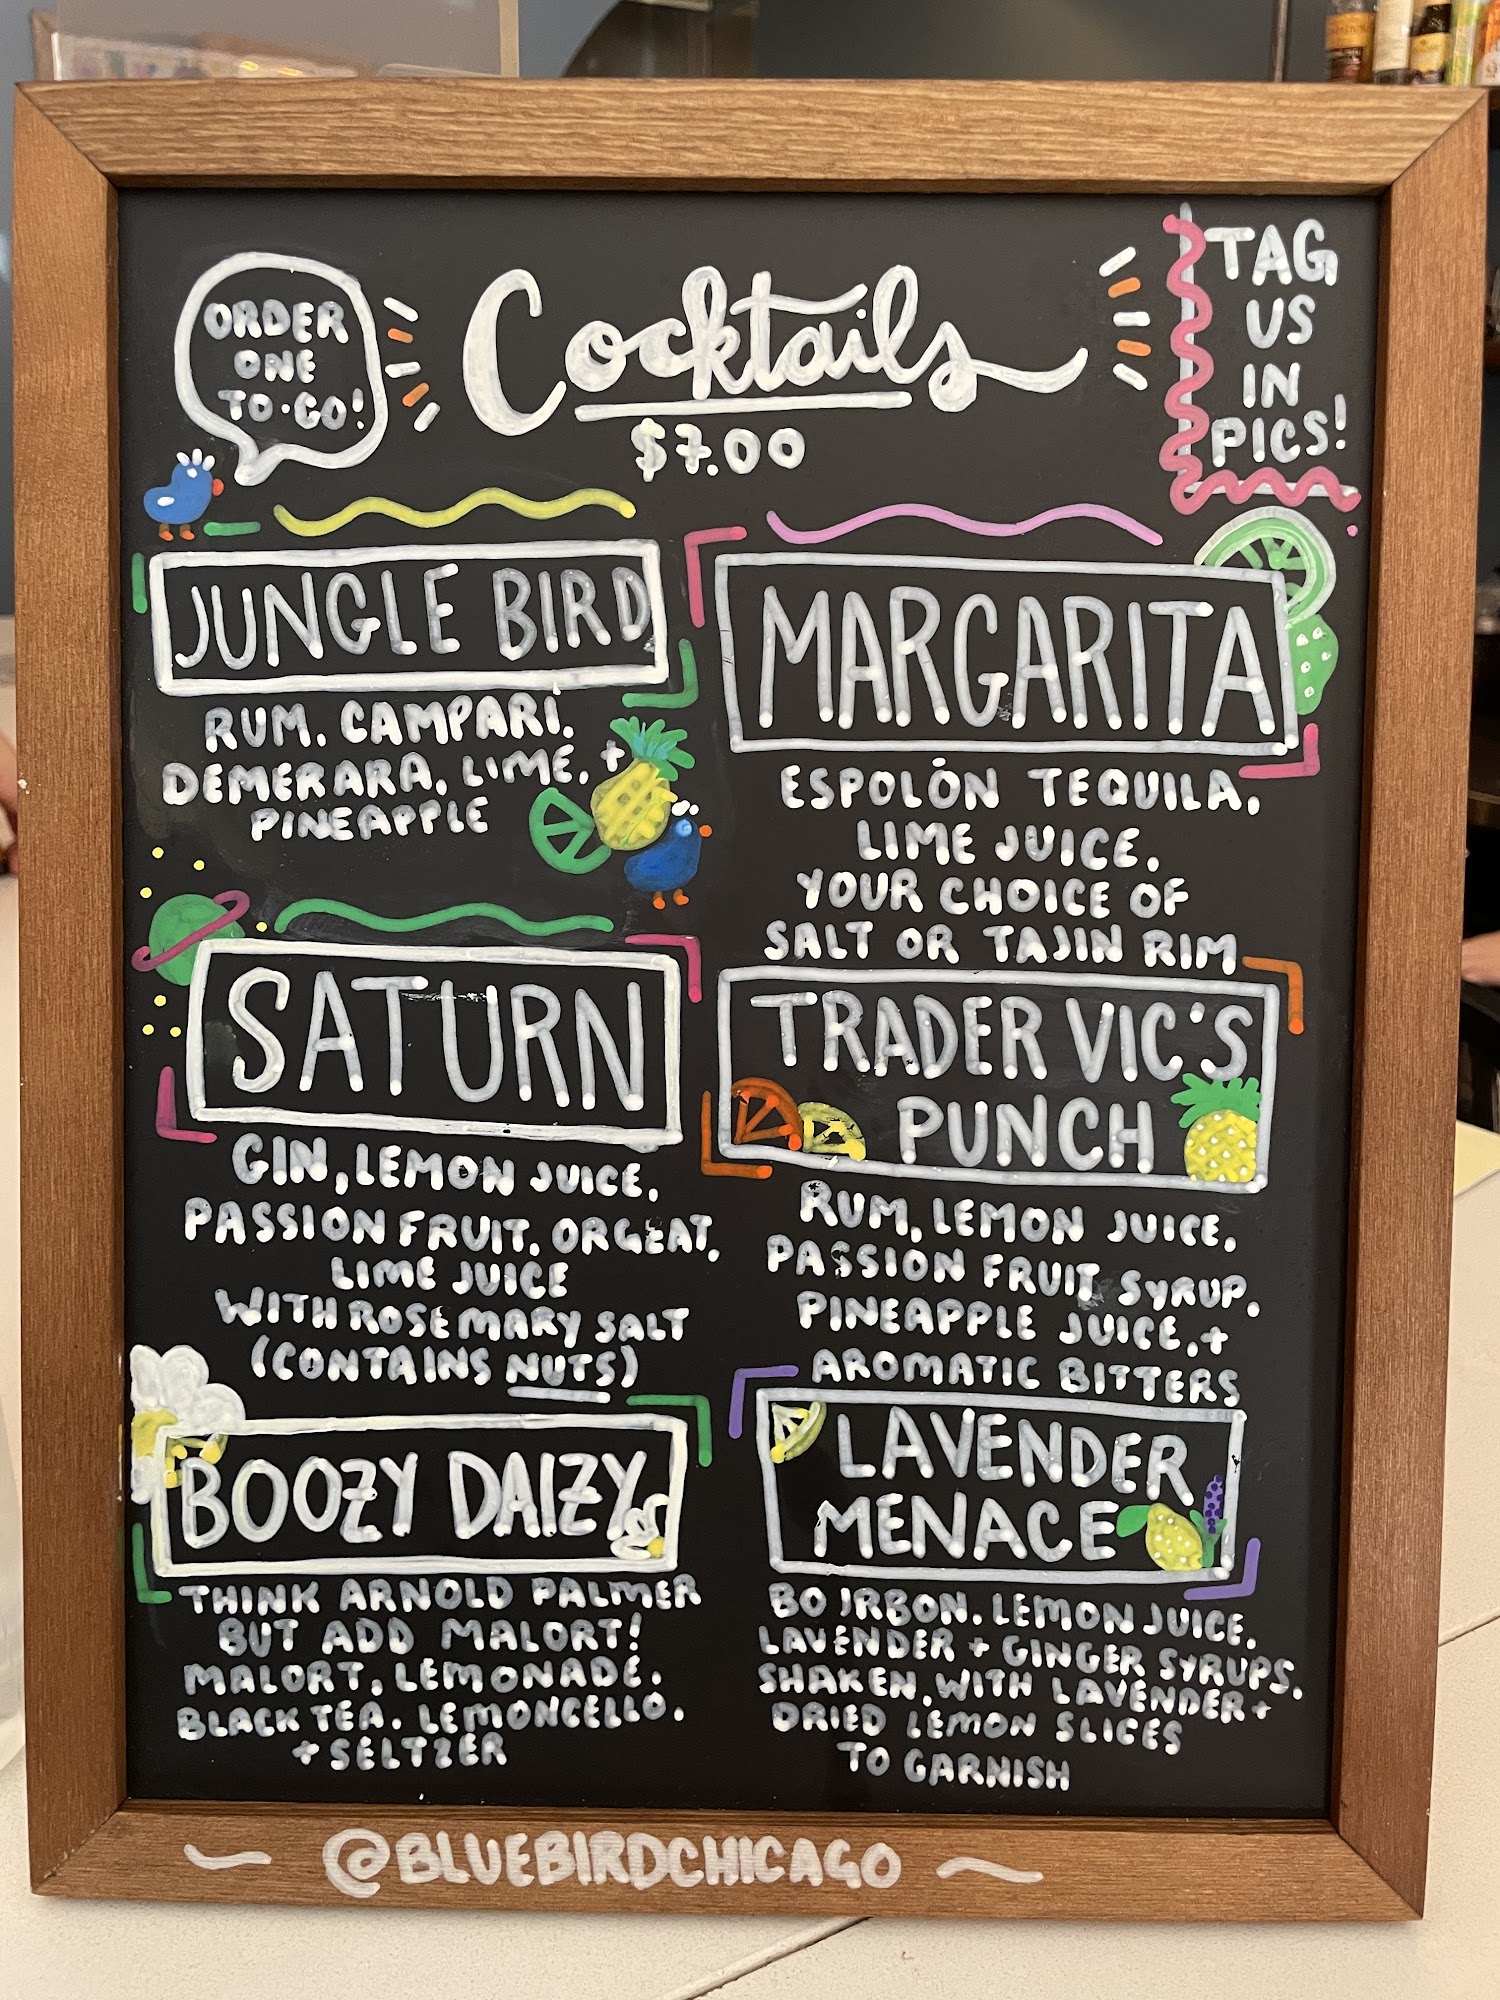 ORDER
ONE
TO·GO!
Cocktails
$7.00
TAG
US
IN
PICS!
JUNGLE BIRD
RUM, CAMPARI,
DEMERARA, LIME, +
PINEAPPLE
SATURN
GIN, LEMON JUICE,
PASSION FRUIT, ORGEAT,
LIME JUICE
WITH ROSEMARY SALT
(CONTAINS NUTS)
BOOZY DAIZY
THINK ARNOLD PALMER
BUT ADD MALORT!
MALORT, LEMONADE,
BLACK TEA, LEMONCELLO,
+ SELTZER
MARGARITA
ESPOLÓN TEQUILA,
LIME JUICE,
YOUR CHOICE OF
SALT OR TAJIN RIM
TRADER VIC'S
PUNCH
RUM, LEMON JUICE,
PASSION FRUIT SYRUP,
PINEAPPLE JUICE, +
AROMATIC BITTERS
LAVENDER
MENACE
BOURBON, LEMON JUICE,
LAVENDER + GINGER SYRUPS,
SHAKEN, WITH LAVENDER +
DRIED LEMON SLICES
TO GARNISH
@BLUEBIRDCHICAGO